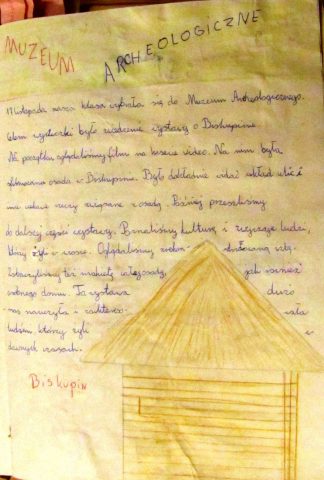 MUZEUM ARCHEOLOGICZNE
17 listopada nasza klasa wybrała się do Muzeum Archeologicznego.
Celem wycieczki było zwiedzenie wystawy o Biskupinie.
Na początku oglądaliśmy film na kasecie video. Na nim była
osada w Biskupinie. Było dokładnie widać układ ulic i
inne ciekawe rzeczy związane z osadą. Później przeszliśmy
do dalszej części wystawy. Poznaliśmy kulturę i zwyczaje ludzi,
którzy żyli w osadzie. Oglądaliśmy
Zobaczyliśmy też makietę całej osady, jak również
jednego domu. Ta wystawa dużo
nas nauczyła i zainteresowała
ludźmi, którzy żyli w
dawnych czasach.
Biskupin